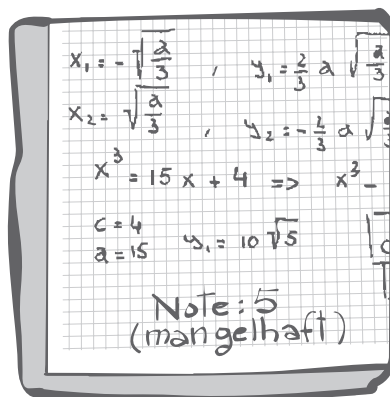 x₁ = -√(a/3) , y₁ = 2/3 a √(a/3)
x₂ = √(a/3) , y₂ = -2/3 a √(a/3)
x³ = 15 x + 4 => x³ -
c = 4
a = 15 y₁ = 10 √5
Note: 5
(mangelhaft)